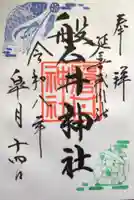 奉拝
延喜式内社
磐井神社
令和八年
皐月十四日